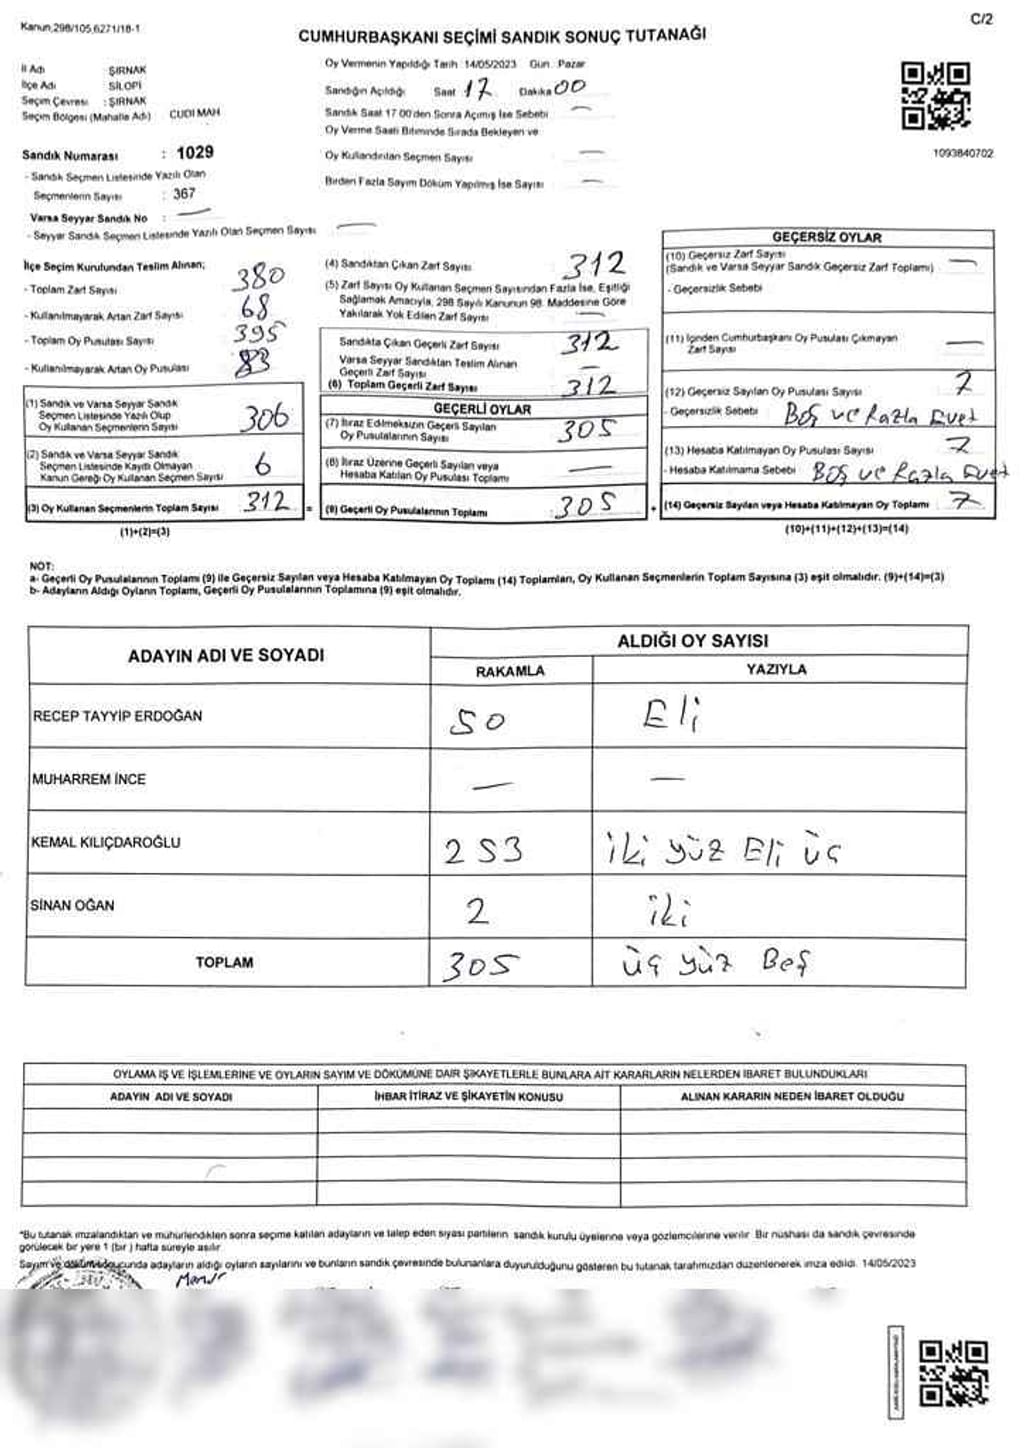 Kanun,298/105,6271/18-1
C/2
CUMHURBAŞKANI SEÇİMİ SANDIK SONUÇ TUTANAĞI
İl Adı : ŞIRNAK
İlçe Adı : SİLOPİ
Seçim Çevresi : ŞIRNAK
Seçim Bölgesi (Mahalle Adı) CUDI MAH
Sandık Numarası : 1029
- Sandık Seçmen Listesinde Yazılı Olan
Seçmenlerin Sayısı : 367
Varsa Seyyar Sandık No : —
- Seyyar Sandık Seçmen Listesinde Yazılı Olan Seçmen Sayısı : —
Oy Vermenin Yapıldığı Tarih :14/05/2023 Gün : Pazar
Sandığın Açıldığı Saat 17 Dakika 00
Sandık Saat 17.00'den Sonra Açılmış İse Sebebi —
Oy Verme Saati Bitiminde Sırada Bekleyen ve
Oy Kullandırılan Seçmen Sayısı —
Birden Fazla Sayım Döküm Yapılmış İse Sayısı —
1093840702
İlçe Seçim Kurulundan Teslim Alınan;
- Toplam Zarf Sayısı 380
- Kullanılmayarak Artan Zarf Sayısı 68
- Toplam Oy Pusulası Sayısı 395
- Kullanılmayarak Artan Oy Pusulası 83
(1) Sandık ve Varsa Seyyar Sandık
Seçmen Listesinde Yazılı Olup
Oy Kullanan Seçmenlerin Sayısı 306
(2) Sandık ve Varsa Seyyar Sandık
Seçmen Listesinde Kayıtlı Olmayan
Kanun Gereği Oy Kullanan Seçmen Sayısı 6
(3) Oy Kullanan Seçmenlerin Toplam Sayısı 312 =
(1)+(2)=(3)
(4) Sandıktan Çıkan Zarf Sayısı 312
(5) Zarf Sayısı Oy Kullanan Seçmen Sayısından Fazla İse, Eşitliği
Sağlamak Amacıyla, 298 Sayılı Kanunun 98. Maddesine Göre
Yakılarak Yok Edilen Zarf Sayısı —
Sandıkta Çıkan Geçerli Zarf Sayısı 312
Varsa Seyyar Sandıktan Teslim Alınan
Geçerli Zarf Sayısı —
(6) Toplam Geçerli Zarf Sayısı 312
GEÇERLİ OYLAR
(7) İtiraz Edilmeksizin Geçerli Sayılan
Oy Pusulalarının Sayısı 305
(8) İtiraz Üzerine Geçerli Sayılan veya
Hesaba Katılan Oy Pusulası Toplamı —
(9) Geçerli Oy Pusulalarının Toplamı 305 +
GEÇERSİZ OYLAR
(10) Geçersiz Zarf Sayısı
(Sandık ve Varsa Seyyar Sandık Geçersiz Zarf Toplamı) —
- Geçersizlik Sebebi
(11) İçinden Cumhurbaşkanı Oy Pusulası Çıkmayan
Zarf Sayısı —
(12) Geçersiz Sayılan Oy Pusulası Sayısı 7
- Geçersizlik Sebebi Boş ve Fazla Evet
(13) Hesaba Katılmayan Oy Pusulası Sayısı 7
- Hesaba Katılmama Sebebi Boş ve Fazla Evet
(14) Geçersiz Sayılan veya Hesaba Katılmayan Oy Toplamı 7
(10)+(11)+(12)+(13)=(14)
NOT:
a- Geçerli Oy Pusulalarının Toplamı (9) ile Geçersiz Sayılan veya Hesaba Katılmayan Oy Toplamı (14) Toplamları, Oy Kullanan Seçmenlerin Toplam Sayısına (3) eşit olmalıdır. (9)+(14)=(3)
b- Adayların Aldığı Oyların Toplamı, Geçerli Oy Pusulalarının Toplamına (9) eşit olmalıdır.
ADAYIN ADI VE SOYADI
ALDIĞI OY SAYISI
RAKAMLA YAZIYLA
RECEP TAYYİP ERDOĞAN 50 Eli
MUHARREM İNCE — —
KEMAL KILIÇDAROĞLU 253 iki yüz Eli üç
SİNAN OĞAN 2 iki
TOPLAM 305 üç yüz Beş
OYLAMA İŞ VE İŞLEMLERİNE VE OYLARIN SAYIM VE DÖKÜMÜNE DAİR ŞİKAYETLERLE BUNLARA AİT KARARLARIN NELERDEN İBARET BULUNDUKLARI
ADAYIN ADI VE SOYADI İHBAR İTİRAZ VE ŞİKAYETİN KONUSU ALINAN KARARIN NEDEN İBARET OLDUĞU
*Bu tutanak imzalandıktan ve mühürlendikten sonra seçime katılan adayların ve talep eden siyasi partilerin sandık kurulu üyelerine veya gözlemcilerine verilir. Bir nüshası da sandık çevresinde
görülecek bir yere 1 (bir) hafta süreyle asılır.
Sayım ve döküm sonucunda adayların aldığı oyların sayılarını ve bunların sandık çevresinde bulunanlara duyurulduğunu gösteren bu tutanak tarafımızdan düzenlenerek imza edildi. 14/05/2023